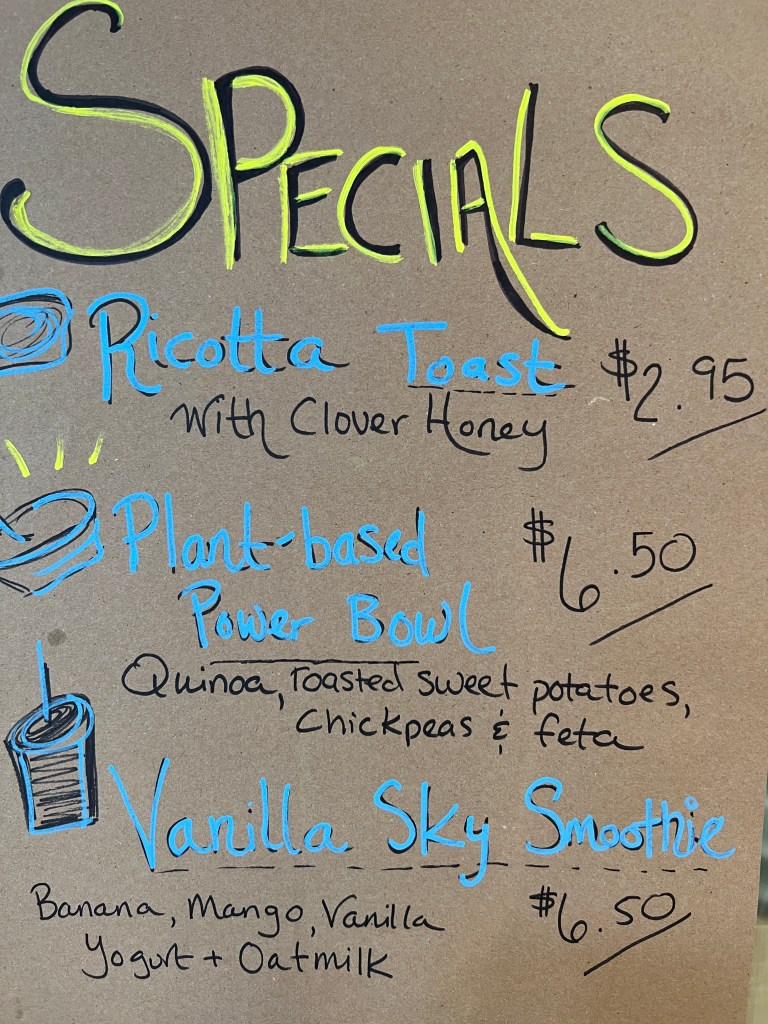 SPECIALS
Ricotta Toast $2.95
With Clover Honey
Plant-based $6.50
Power Bowl
Quinoa, roasted sweet potatoes,
Chickpeas & feta
Vanilla Sky Smoothie
Banana, Mango, Vanilla $6.50
Yogurt + Oatmilk